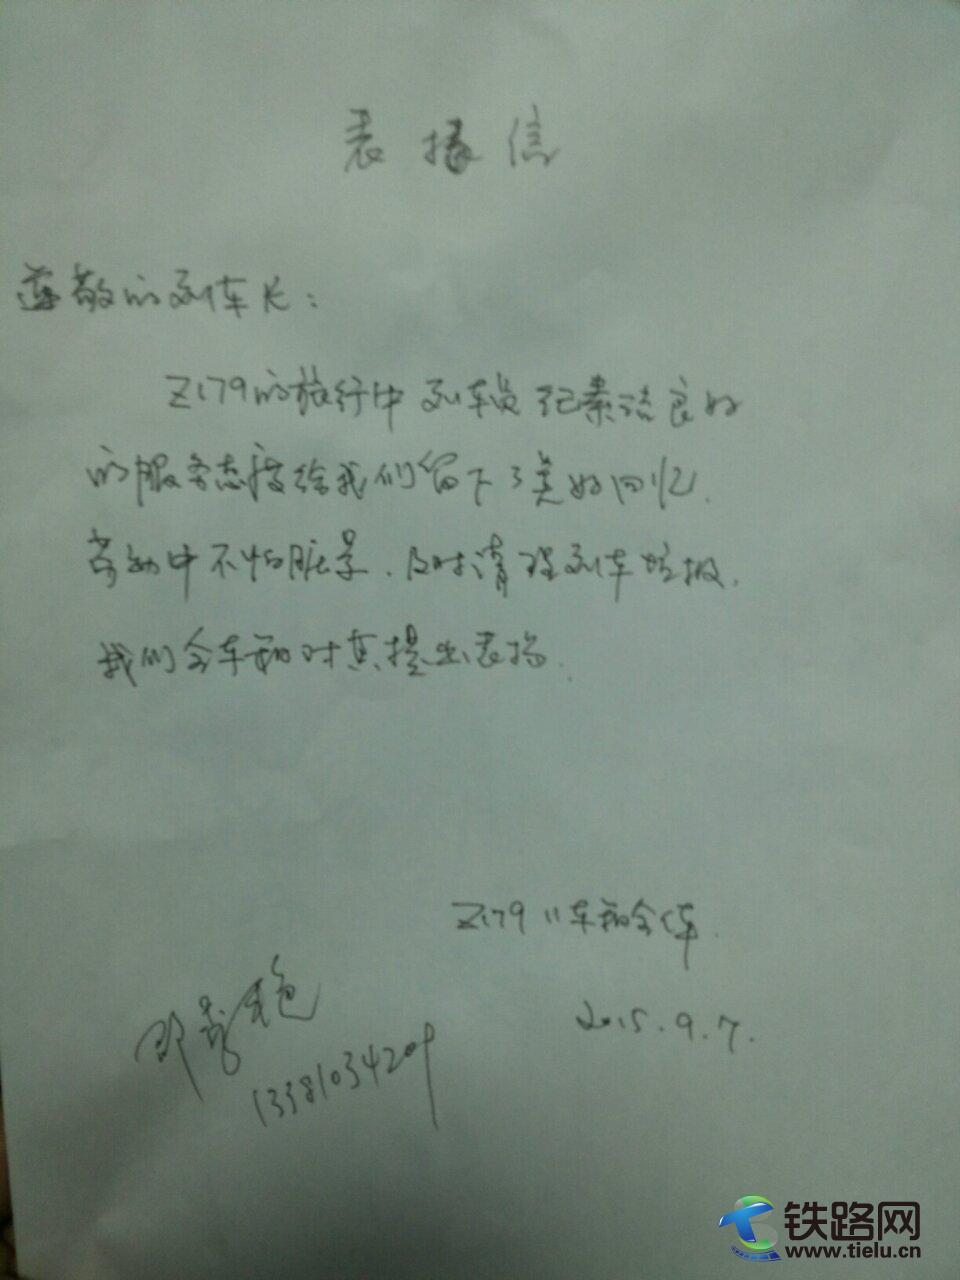 表扬信
尊敬的列车长：
Z179的旅行中列车员纪素洁良好
的服务态度给我们留下了美好回忆.
劳动中不怕脏累.及时清理列车垃圾.
我们全车厢对其提出表扬.
Z179 11车厢全体.
2015.9.7.
邓秀艳
铁路网
www.tielu.cn